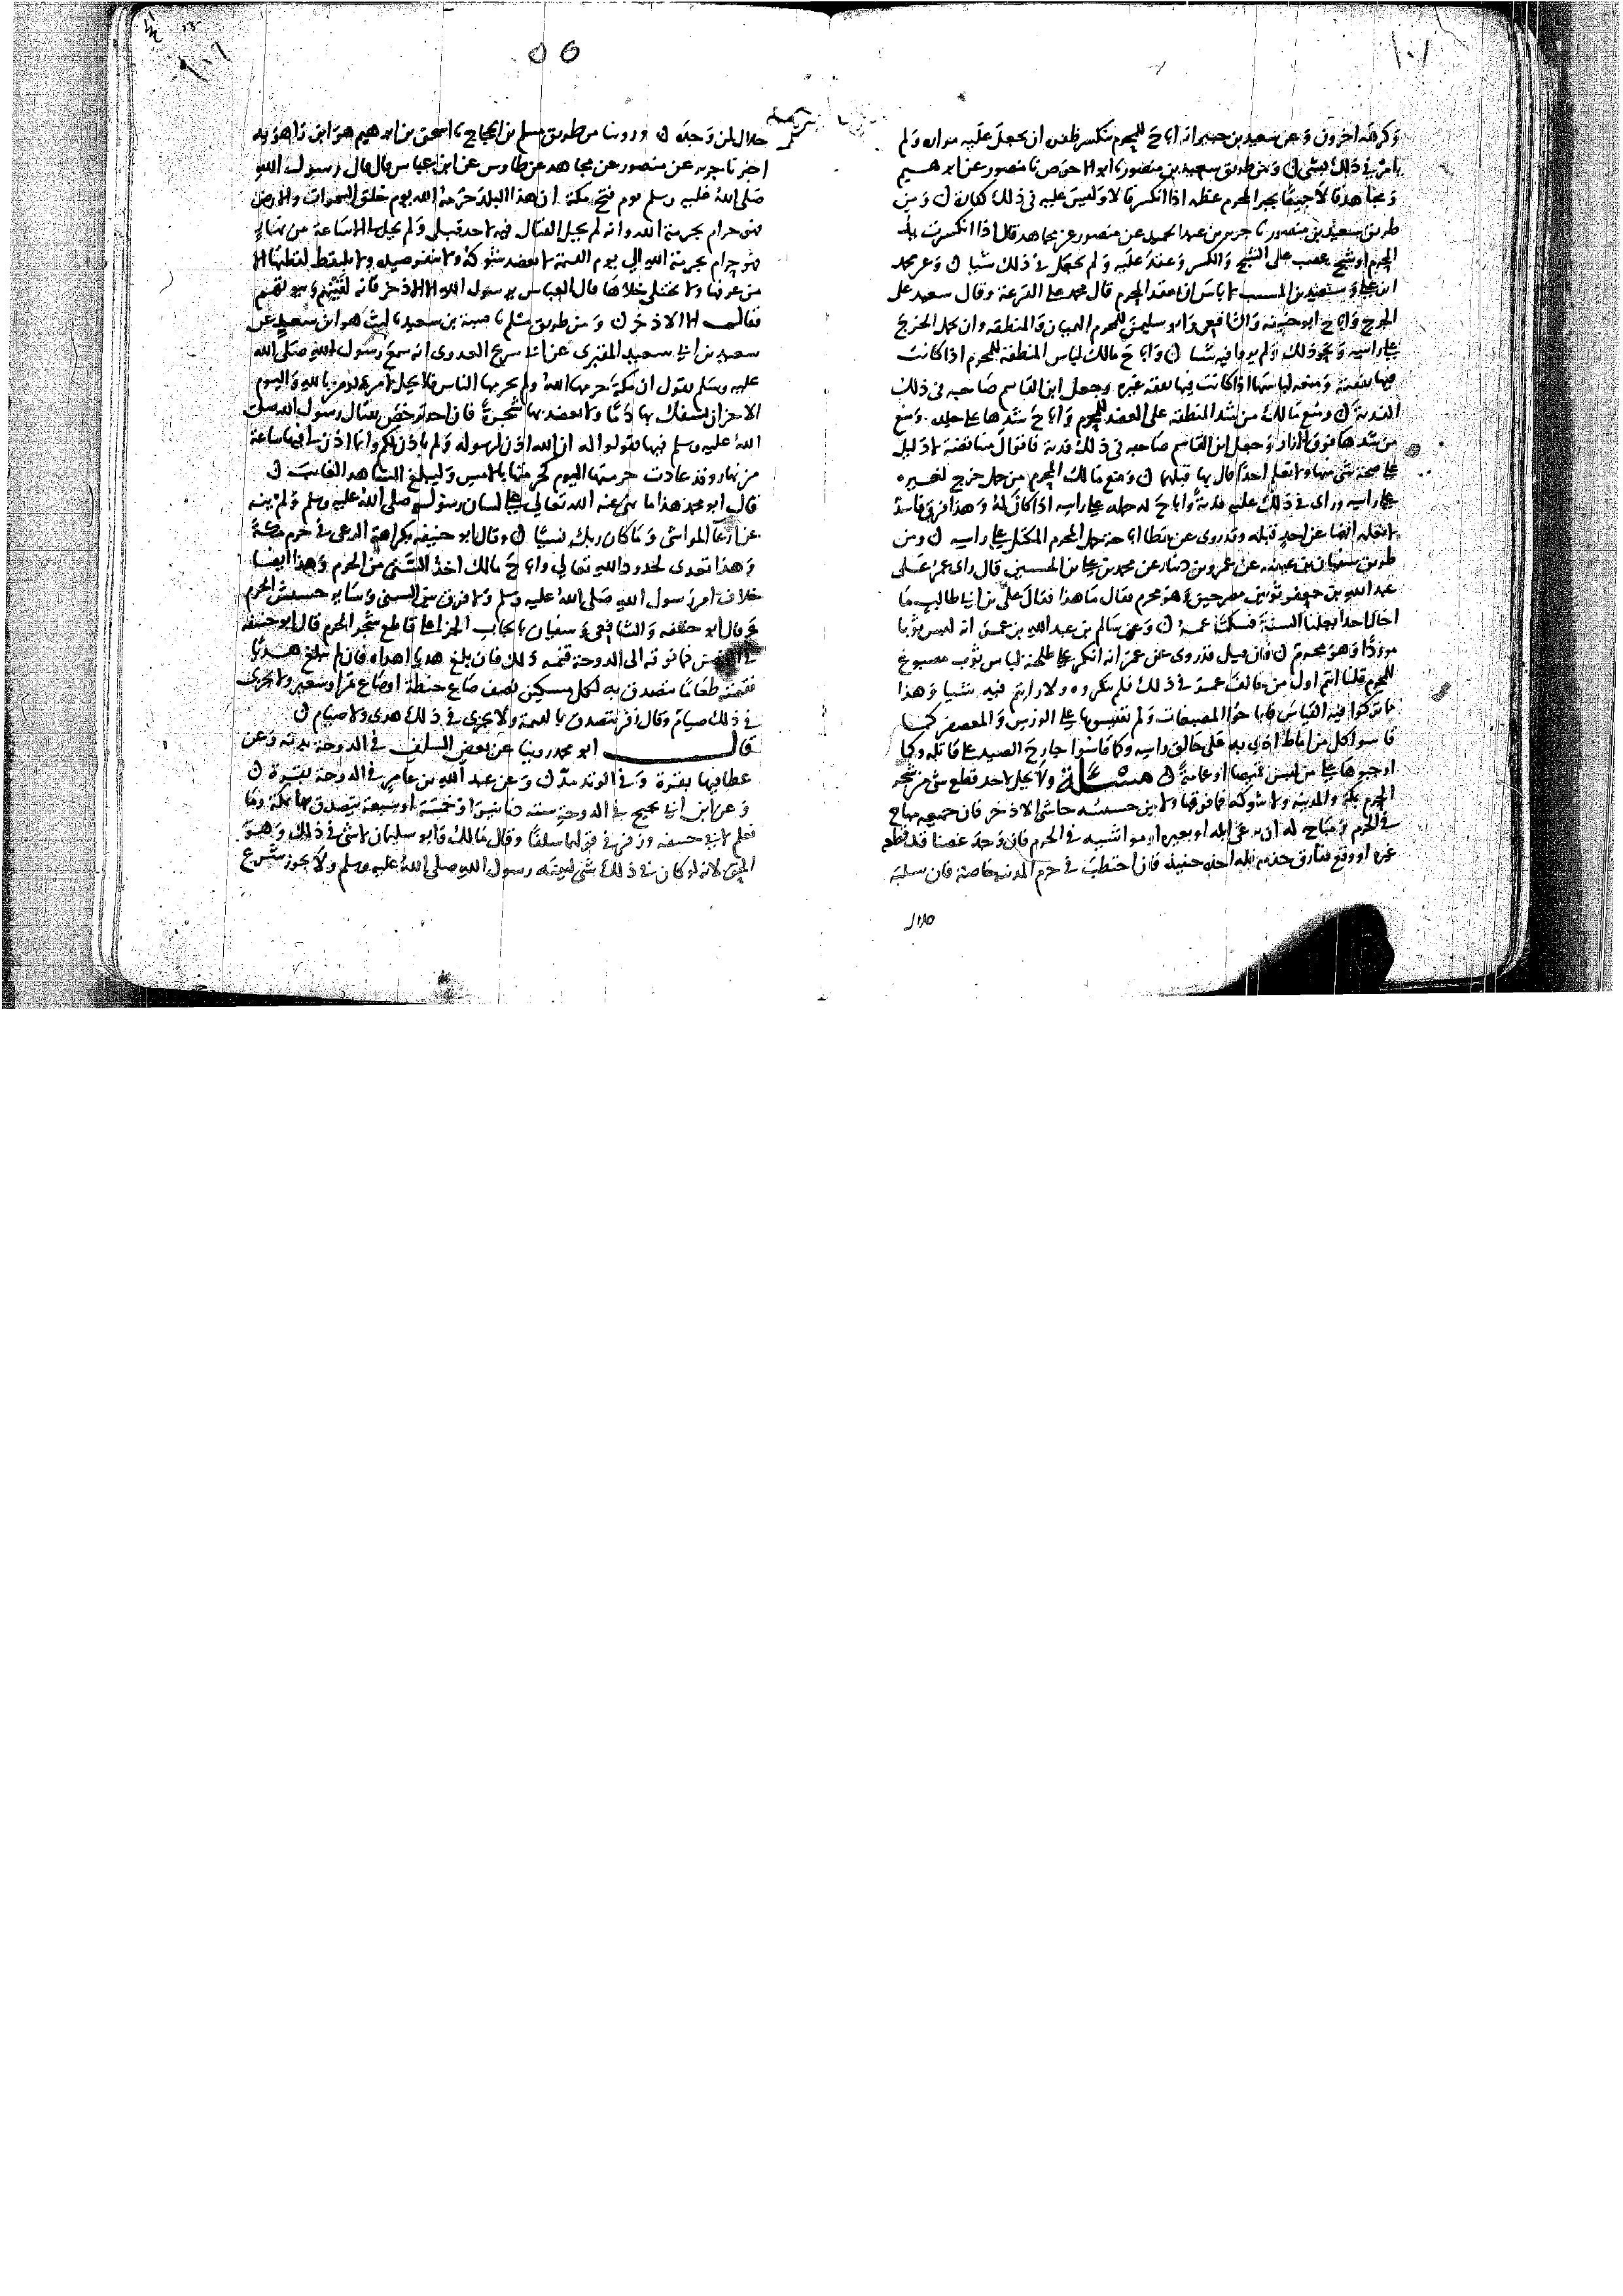 وكرهه اخرون وعن سعيد بن جبير انه اباح للمحرم ينكسر ظفره ان يجعل عليه مرارة ولم
يامر في ذلك بشي ومن طريق سعيد بن منصور نا ابو الاحوص نا منصور عن ابرهيم
ومجاهد قالا جميعا يجبر المحرم عظمه اذا انكسر قالا وليس عليه في ذلك كفارة ومن
طريق سعيد بن منصور نا جرير بن عبد الحميد عن منصور عن مجاهد قال اذا انكسرت يد
المحرم او شج عصب على الشج والكسر وعقد عليه ولم يجعل في ذلك شيا وعن محمد
ابن علي وسعيد بن المسيب لا باس ان يعقد المحرم قال محمد على القرحة وقال سعيد على
الجرح واباح ابو حنيفه والشافعي وابو سليمن للمحرم الهميان والمنطقه وان يحمل الخرج
على راسه ونحو ذلك ولم يروا فيه شيا واباح مالك لباس المنطقة للمحرم اذا كانت
فيها نفقته ومنعه لباسها اذا كانت فيها نفقه غيره وجعل ابن القاسم صاحبه في ذلك
الفدية ومنع مالك من شد المنطقه على العضد للمحرم واباح شدها على جلده ومنع
من شدها فوق الازار وجعل ابن القاسم صاحبه في ذلك فدية فاقوال متناقضة لا دليل
على صحة شي منها ولا نعلم احدا قال بها قبلهما ومنع مالك المحرم من حمل خرج لغيره
على راسه وراى في ذلك عليه فدية واباح له حمله على راسه اذا كان له وهذا فرق فاسد
لا نعلمه ايضا عن احد قبله وقد روي عن عطا اباحة حمل المحرم المكتل على راسه ومن
طريق سفيان بن عيينه عن عمرو بن دينار عن محمد بن علي بن الحسين قال راى عمر على
عبد الله بن جعفر ثوبين مضرجين وهو محرم فقال ما هذا فقال علي بن ابي طالب ما
اخال احدا يعلمنا السنة فسكت عمر وعن سالم بن عبد الله بن عمر انه لبس ثوبا
موردا وهو محرم فان قيل قد روي عن عمر انه انكر على طلحة لباس ثوب مصبوغ
للمحرم قلنا انتم اول من خالف عمر في ذلك فلم تنكروه ولا رايتم فيه شيا وهذا
ما تركوا فيه القياس فاباحوا المصبغات ولم يقيسوها على الورس والمعصفر كما
قاسوا كل من اماط اذى به على حالق راسه وكما قاسوا جارح الصيد على قاتله وكما
اوجبوها على من لبس قميصا او عمامة مسئلة ولا يحل لاحد قطع شي من شجر
الحرم بمكة والمدينه ولا شوكة فما فوقها ولا من حشيشه حاشى الاذخر فان جميعه مباح
في الحرم ومباح له ان يرعى ابله او بعيره او مواشيه في الحرم فان وجد غصنا قد قطعه
غيره او وقع ففارق جذمه فله اخذه حينيذ فان احتطب في حرم المدينه خاصة فان سلبه
حلال
حلال لمن وجده وروينا من طريق مسلم بن الحجاج نا اسحق بن ابرهيم هو ابن راهويه
اخبرنا جرير عن منصور عن مجاهد عن طاوس عن ابن عباس قال قال رسول الله
صلى الله عليه وسلم يوم فتح مكة ان هذا البلد حرمه الله يوم خلق السموات والارض
فهو حرام بحرمة الله وانه لم يحل القتال فيه لاحد قبلي ولم يحل لي الا ساعة من نهار
فهو حرام بحرمة الله الى يوم القيمة لا يعضد شوكه ولا ينفر صيده ولا يلتقط لقطته الا
من عرفها ولا يختلى خلاها قال العباس يرسول الله الا الاذخر فانه لقينهم ولبيوتهم
فقال الا الاذخر ومن طريق مسلم نا قتيبة بن سعيد نا ليث هو ابن سعد عن
سعيد بن ابي سعيد المقبري عن ابي شريح العدوي انه سمع رسول الله صلى الله
عليه وسلم يقول ان مكة حرمها الله ولم يحرمها الناس فلا يحل لامرى يومن بالله واليوم
الاخر ان يسفك بها دما ولا يعضد بها شجرة فان احد ترخص بقتال رسول الله صلى
الله عليه وسلم فيها فقولوا له ان الله اذن لرسوله ولم ياذن لكم وانما اذن لي فيها ساعة
من نهار وقد عادت حرمتها اليوم كحرمتها بالامس وليبلغ الشاهد الغايب
قال ابو محمد هذا ما نهى عنه الله تعالى على لسان رسوله صلى الله عليه وسلم ولم ينه
عن ارعا المواشي وما كان ربك نسيا وقال ابو حنيفه بكراهة الرعي في حرم مكة
وهذا تعدى لحدود الله تعالى واباح مالك اخذ السنى من الحرم وهذا ايضا
خلاف امر رسول الله صلى الله عليه وسلم ولا فرق بين السنى وساير حشيش الحرم
وقال ابو حنيفه والشافعي وسفيان بايجاب الجزا على قاطع شجر الحرم قال ابو حنيفه
في الغصن فما فوقه الى الدوحة قيمه ذلك فان بلغ هديا اهداه فان لم يبلغ هديا
فقيمته طعاما يتصدق به لكل مسكين نصف صاع حنطة او صاع تمر او شعير ولا يجزى
في ذلك صيام وقال زفر يتصدق بالقيمة ولا يجزى في ذلك هدى ولا صيام
قال ابو محمد روينا عن بعض السلف في الدوحة بدنه وعن
عطا فيها بقرة وفي الوتد مد وعن عبد الله بن عامر في الدوحة بقرة
وعن ابن ابي نجيح في الدوحة سته دنانير او خمسة او سبعة يتصدق بها بمكة وما
نعلم لابي حنيفه وزفر في قولهما سلفا وقال مالك وابو سليمان لا شي في ذلك وهو
الحق لانه لو كان في ذلك شي لبينه رسول الله صلى الله عليه وسلم ولا يجوز شرع